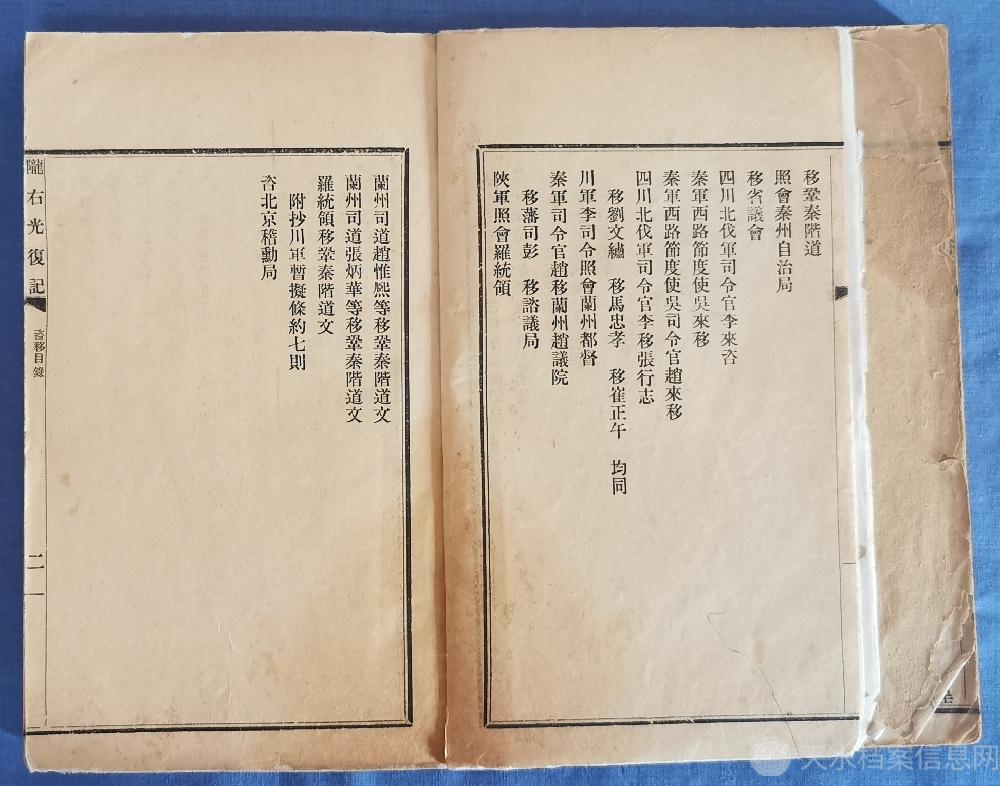 移鞏秦階道
照會秦州自治局
移省議會
四川北伐軍司令官李來咨
秦軍西路節度使吳來移
秦軍西路節度使吳司令官趙來移
四川北伐軍司令官李移張行志
移劉文繡　移馬忠孝　移崔正午　均同
川軍李司令照會蘭州都督
秦軍司令官趙移蘭州趙議院
移藩司彭　移諮議局
陜軍照會羅統領
蘭州司道趙惟熙等移鞏秦階道文
蘭州司道張炳華等移鞏秦階道文
羅統領移鞏秦階道文
附抄川軍暫擬條約七則
咨北京稽勳局
隴右光復記
咨移目錄
二
天水档案信息网